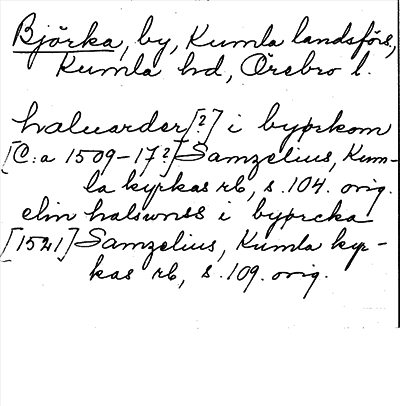 Björka, by, Kumla landsförs,
Kumla hd, Örebro l.
haluarder [?] i byprkom
[C:a 1509-17?] Samzelius, Kum-
la kyrkas rb, s. 104. orig.
elin halswnss i byprcka
[1521] Samzelius, Kumla kyr-
kas rb, s. 109. orig.